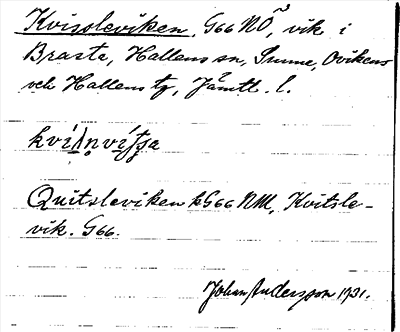 Kvissleviken, G66 NÖ³, vik i
Brasta, Hallens sn, Sunne, Ovikens
och Hallens tg, Jämtl. l.
Quitsleviken k G66 NM, Kvitsle-
vik. G66.
Johan Andersson 1931.